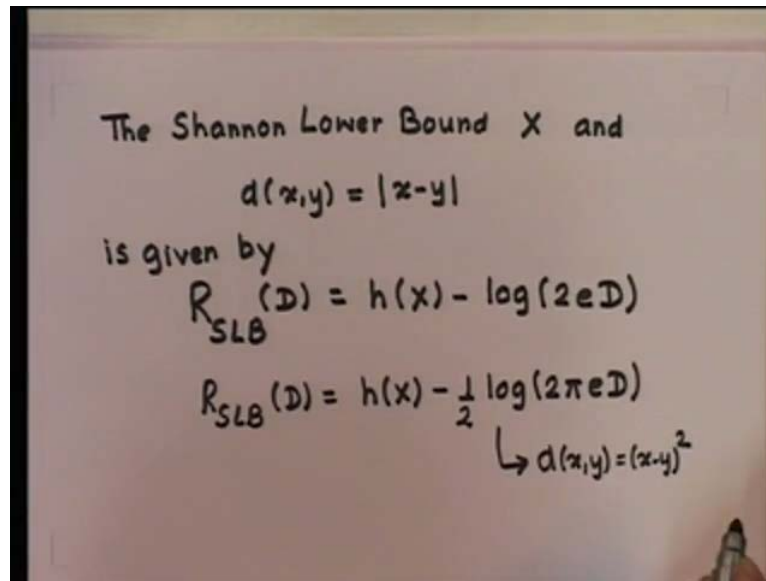 The Shannon Lower Bound X and
d(x,y) = |x-y|
is given by
R_SLB (D) = h(X) - log(2eD)
R_SLB (D) = h(X) - 1/2 log(2πeD)
↳ d(x,y) = (x-y)²